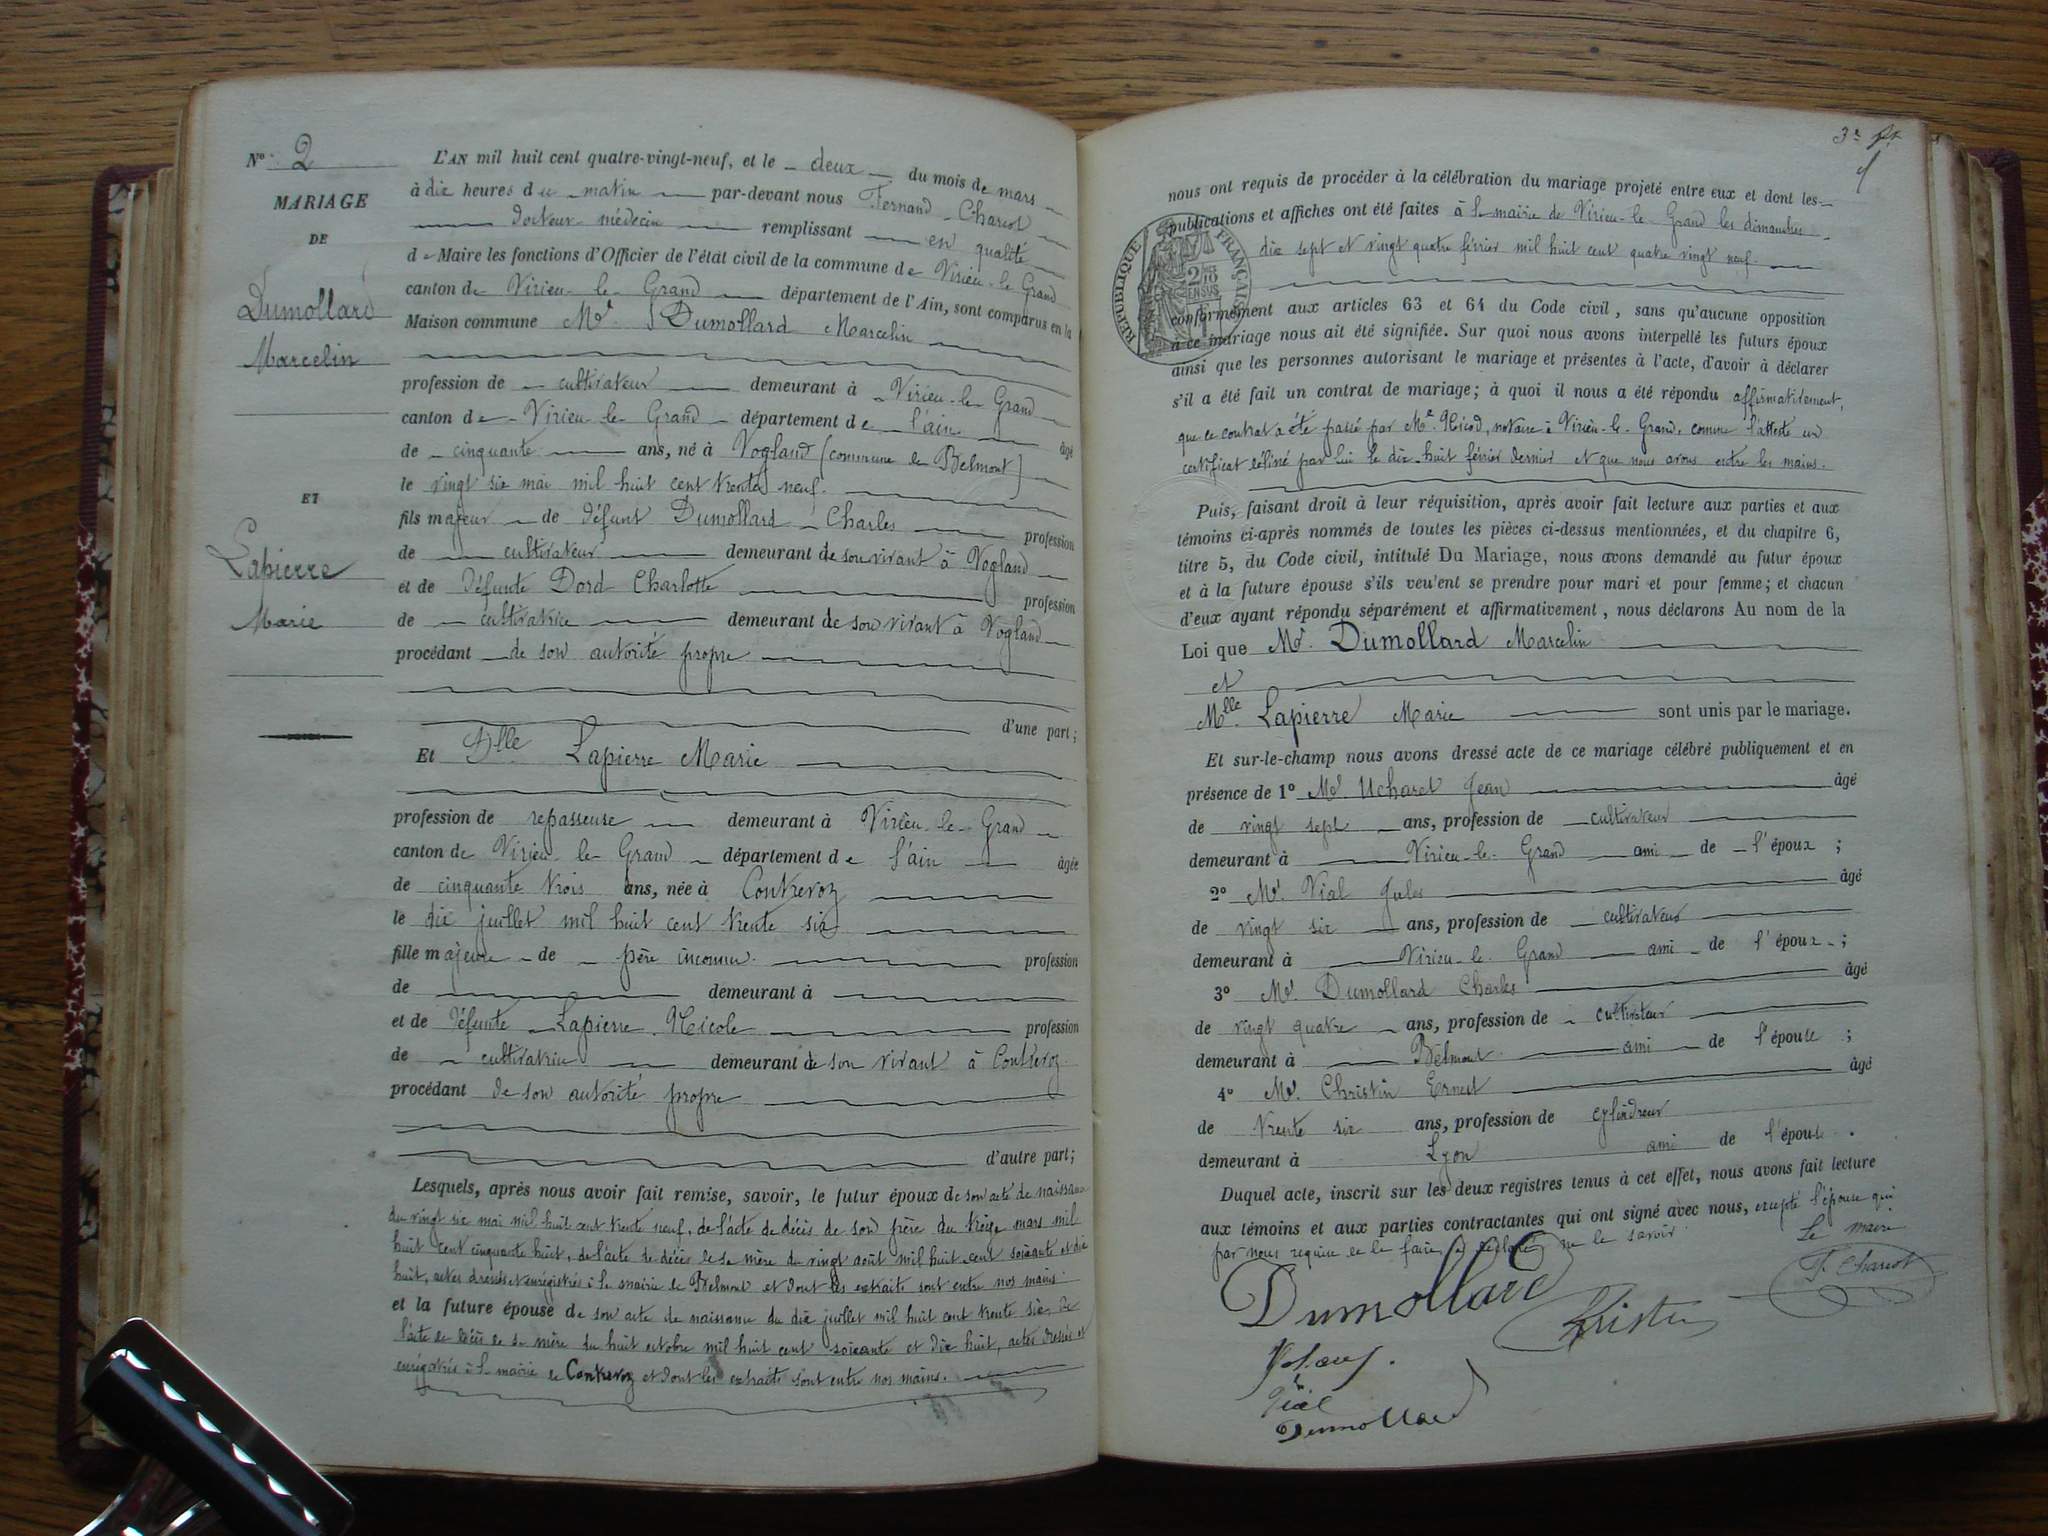 N° 2
MARIAGE
DE
Dumollard
Marcelin
ET
Lapierre
Marie
L'AN mil huit cent quatre-vingt-neuf, et le deux du mois de mars
à dix heures du matin par-devant nous Fernand Charcot
docteur médecin remplissant en qualité
de Maire les fonctions d'Officier de l'état civil de la commune de Virieu-le-Grand
canton de Virieu-le-Grand département de l'Ain, sont comparus en la
Maison commune Mr Dumollard Marcelin
profession de cultivateur demeurant à Virieu-le-Grand
canton de Virieu-le-Grand département de l'ain âgé
de cinquante ans, né à Vogland (commune de Belmont)
le vingt six mai mil huit cent trente neuf.
fils majeur de défunt Dumollard Charles profession
de cultivateur demeurant de son vivant à Vogland
et de défunte Dord Charlotte profession
de cultivatrice demeurant de son vivant à Vogland
procédant de son autorité propre
d'une part;
Et Dlle Lapierre Marie
profession de repasseuse demeurant à Virieu-le-Grand
canton de Virieu-le-Grand département de l'ain âgée
de cinquante trois ans, née à Contrevoz
le dix juillet mil huit cent trente six
fille majeure de père inconnu profession
de demeurant à
et de défunte Lapierre Nicole profession
de cultivatrice demeurant de son vivant à Contrevoz
procédant de son autorité propre
d'autre part;
Lesquels, après nous avoir fait remise, savoir, le futur époux de son acte de naissance
du vingt six mai mil huit cent trente neuf, de l'acte de décès de son père du treize mars mil
huit cent cinquante huit, de l'acte de décès de sa mère du vingt août mil huit cent soixante et dix
huit, actes dressés et enregistrés à la mairie de Belmont et dont les extraits sont entre nos mains
et la future épouse de son acte de naissance du dix juillet mil huit cent trente six, de
l'acte de décès de sa mère du huit octobre mil huit cent soixante et dix huit, actes dressés et
enregistrés à la mairie de Contrevoz et dont les extraits sont entre nos mains.
3e
nous ont requis de procéder à la célébration du mariage projeté entre eux et dont les
publications et affiches ont été faites à la mairie de Virieu-le-Grand les dimanches
dix sept et vingt quatre février mil huit cent quatre vingt neuf.
RÉPUBLIQUE FRANÇAISE
conformément aux articles 63 et 64 du Code civil, sans qu'aucune opposition
à ce mariage nous ait été signifiée. Sur quoi nous avons interpellé les futurs époux
ainsi que les personnes autorisant le mariage et présentes à l'acte, d'avoir à déclarer
s'il a été fait un contrat de mariage; à quoi il nous a été répondu affirmativement,
que ce contrat a été passé par Me Nicod, notaire à Virieu-le-Grand, comme l'atteste un
certificat délivré par lui le dix-huit février dernier et que nous avons entre les mains.
Puis, faisant droit à leur réquisition, après avoir fait lecture aux parties et aux
témoins ci-après nommés de toutes les pièces ci-dessus mentionnées, et du chapitre 6,
titre 5, du Code civil, intitulé Du Mariage, nous avons demandé au futur époux
et à la future épouse s'ils veu'ent se prendre pour mari et pour femme; et chacun
d'eux ayant répondu séparément et affirmativement, nous déclarons Au nom de la
Loi que Mr. Dumollard Marcelin
et
Mlle Lapierre Marie sont unis par le mariage.
Et sur-le-champ nous avons dressé acte de ce mariage célébré publiquement et en
présence de 1° Mr. Ucharet Jean âgé
de vingt sept ans, profession de cultivateur
demeurant à Virieu-le-Grand ami de l'époux ;
2° Mr. Vial Jules âgé
de vingt six ans, profession de cultivateur
demeurant à Virieu-le-Grand ami de l'époux ;
3° Mr. Dumollard Charles âgé
de vingt quatre ans, profession de cultivateur
demeurant à Belmont ami de l'épouse ;
4° Mr. Christin Ernest âgé
de trente six ans, profession de cylindreur
demeurant à Lyon ami de l'épouse .
Duquel acte, inscrit sur les deux registres tenus à cet effet, nous avons fait lecture
aux témoins et aux parties contractantes qui ont signé avec nous, excepté l'épouse qui
par nous requise de le faire a déclaré ne le savoir
Le maire
F. Charcot
Dumollard
Vial
Dumollard